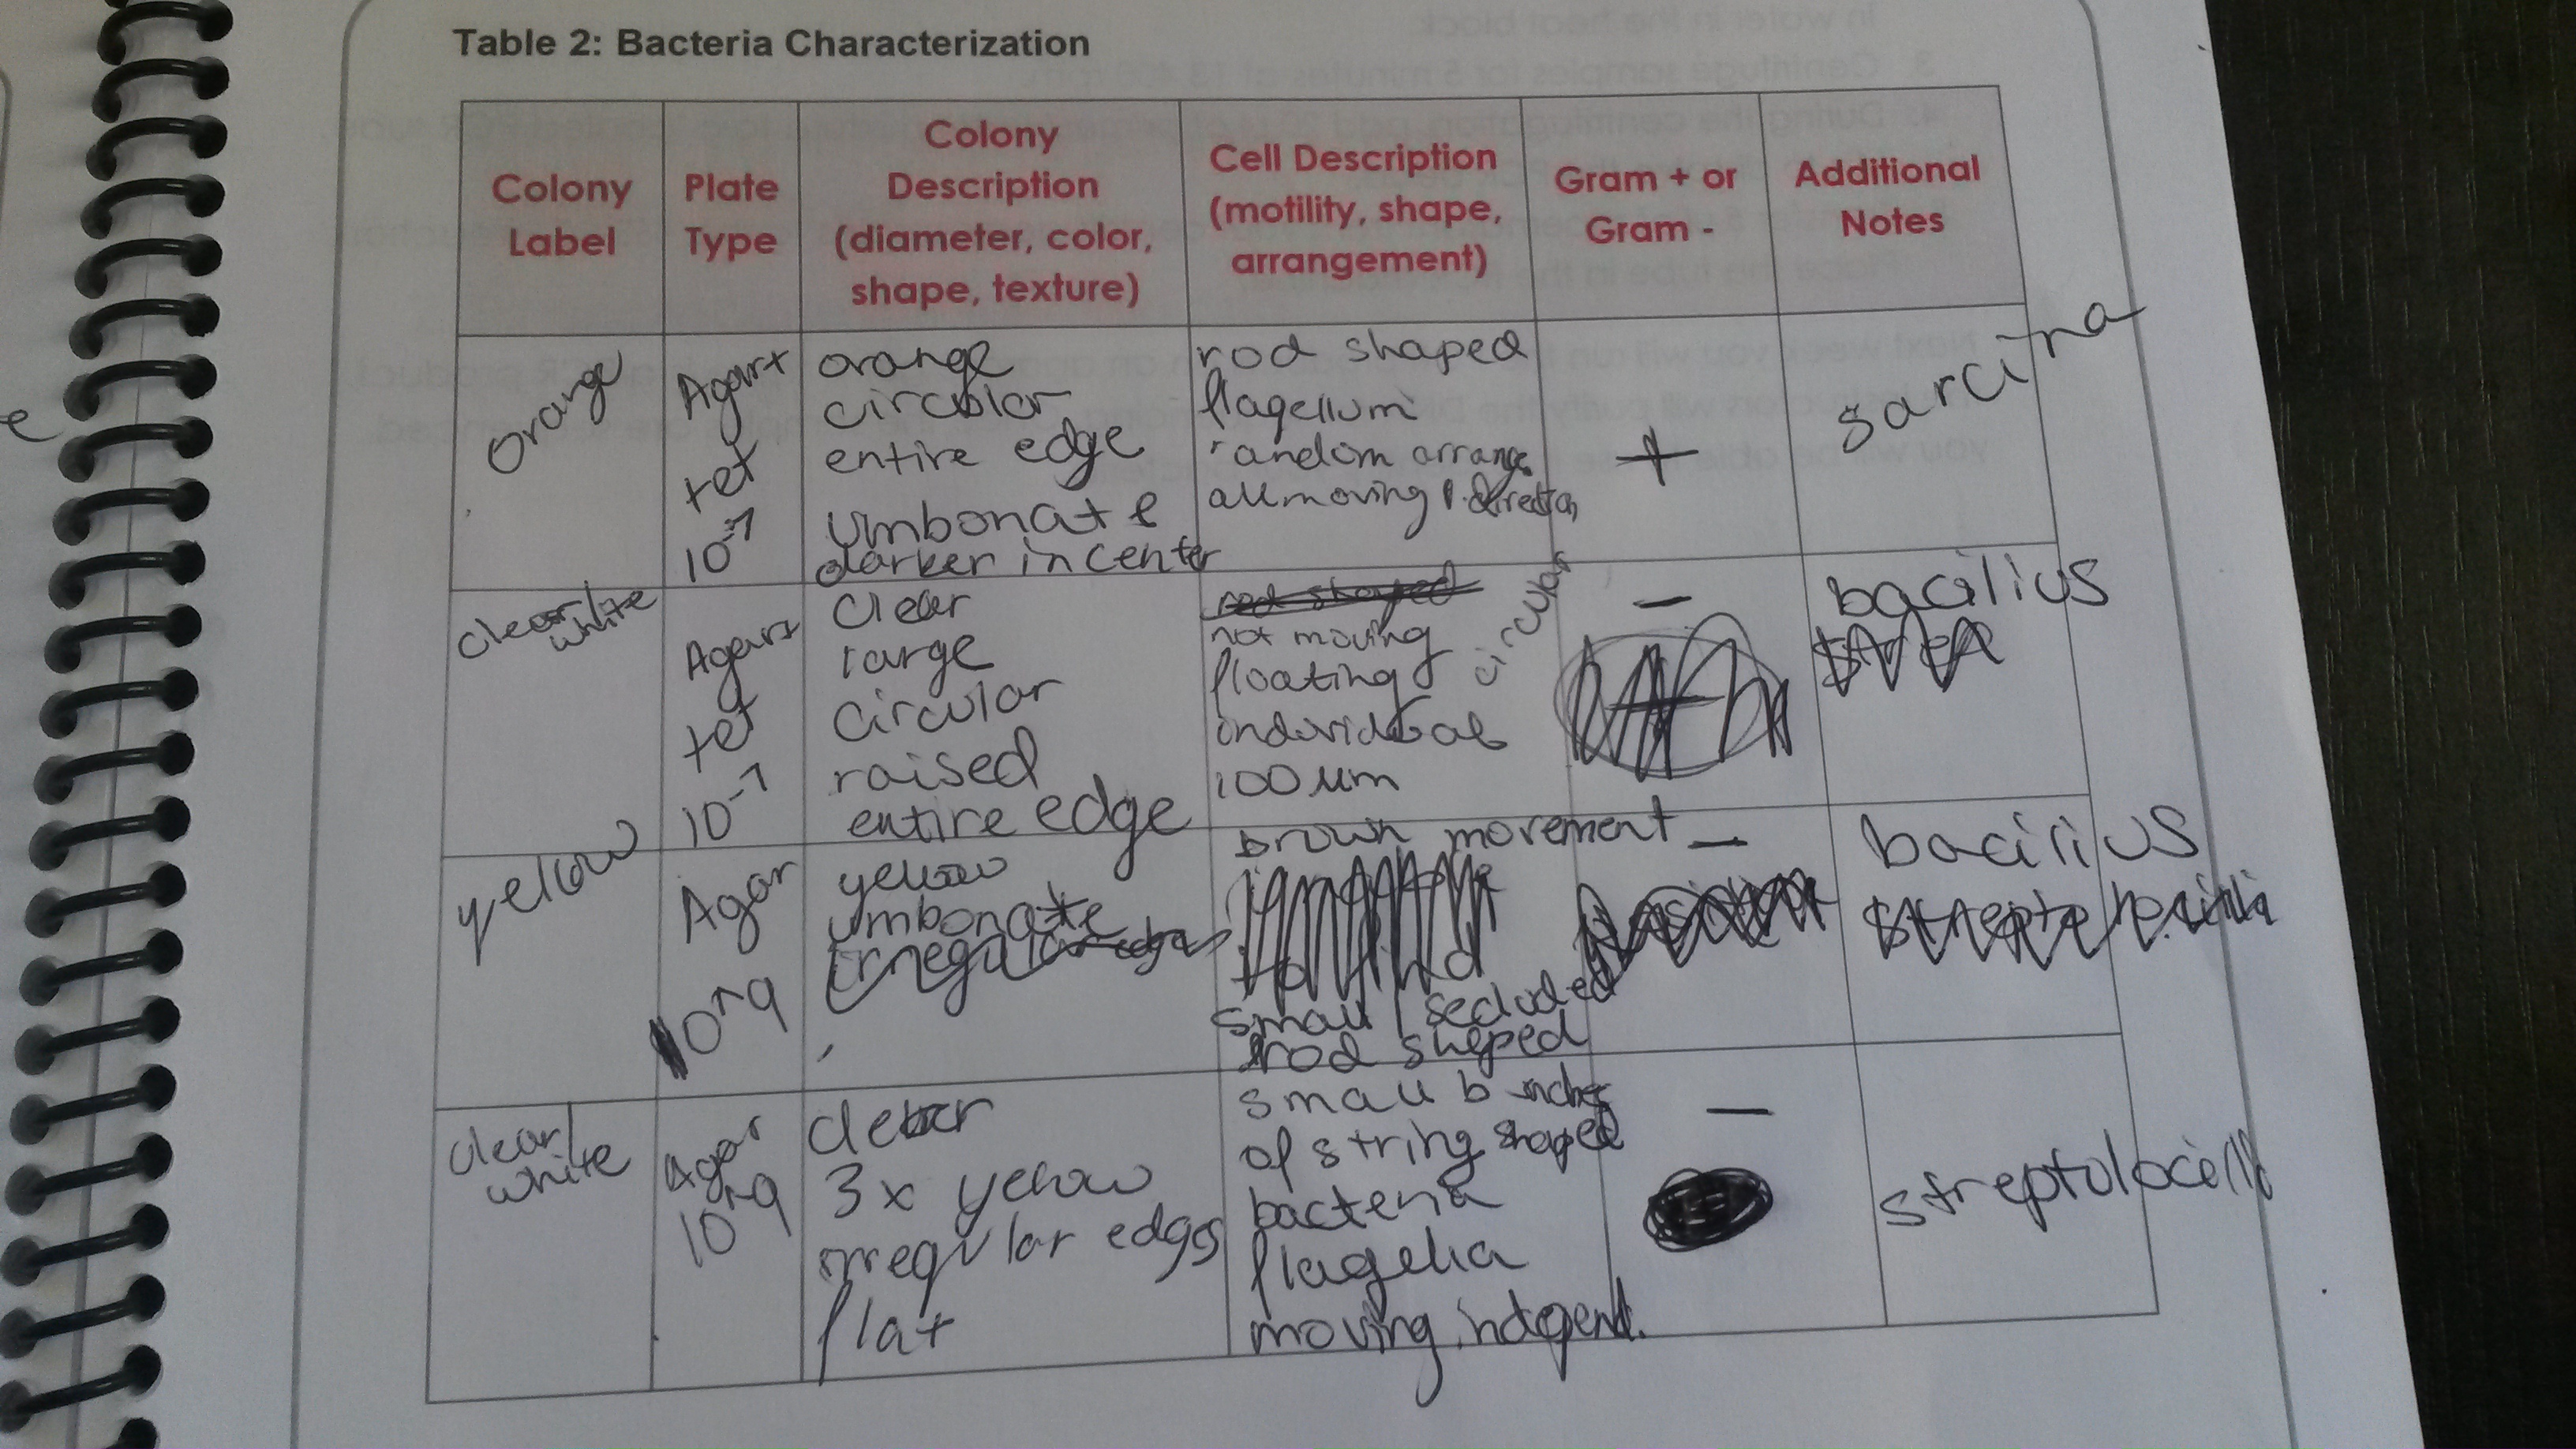 Table 2: Bacteria Characterization
Colony Label
Plate Type
Colony Description (diameter, color, shape, texture)
Cell Description (motility, shape, arrangement)
Gram + or Gram -
Additional Notes
orange
Agar+
tet
10⁻⁷
orange
circular
entire edge
umbonate
darker in center
rod shaped
flagellum
random arrange.
all moving direction
+
sarcina
clear/
white
Agar+
tet
10⁻⁷
clear
large
circular
raised
entire edge
rod shaped
not moving
floating
individual
100 µm
circular
-
bacilius
yellow
Agar
yellow
umbonate
irregular edges
brown movement
small / secluded
rod shaped
-
bacilius
clear/
white
Agar
clear
3x yellow
irregular edges
flat
small bunches
of string shaped
bacteria
flagella
moving independ.
-